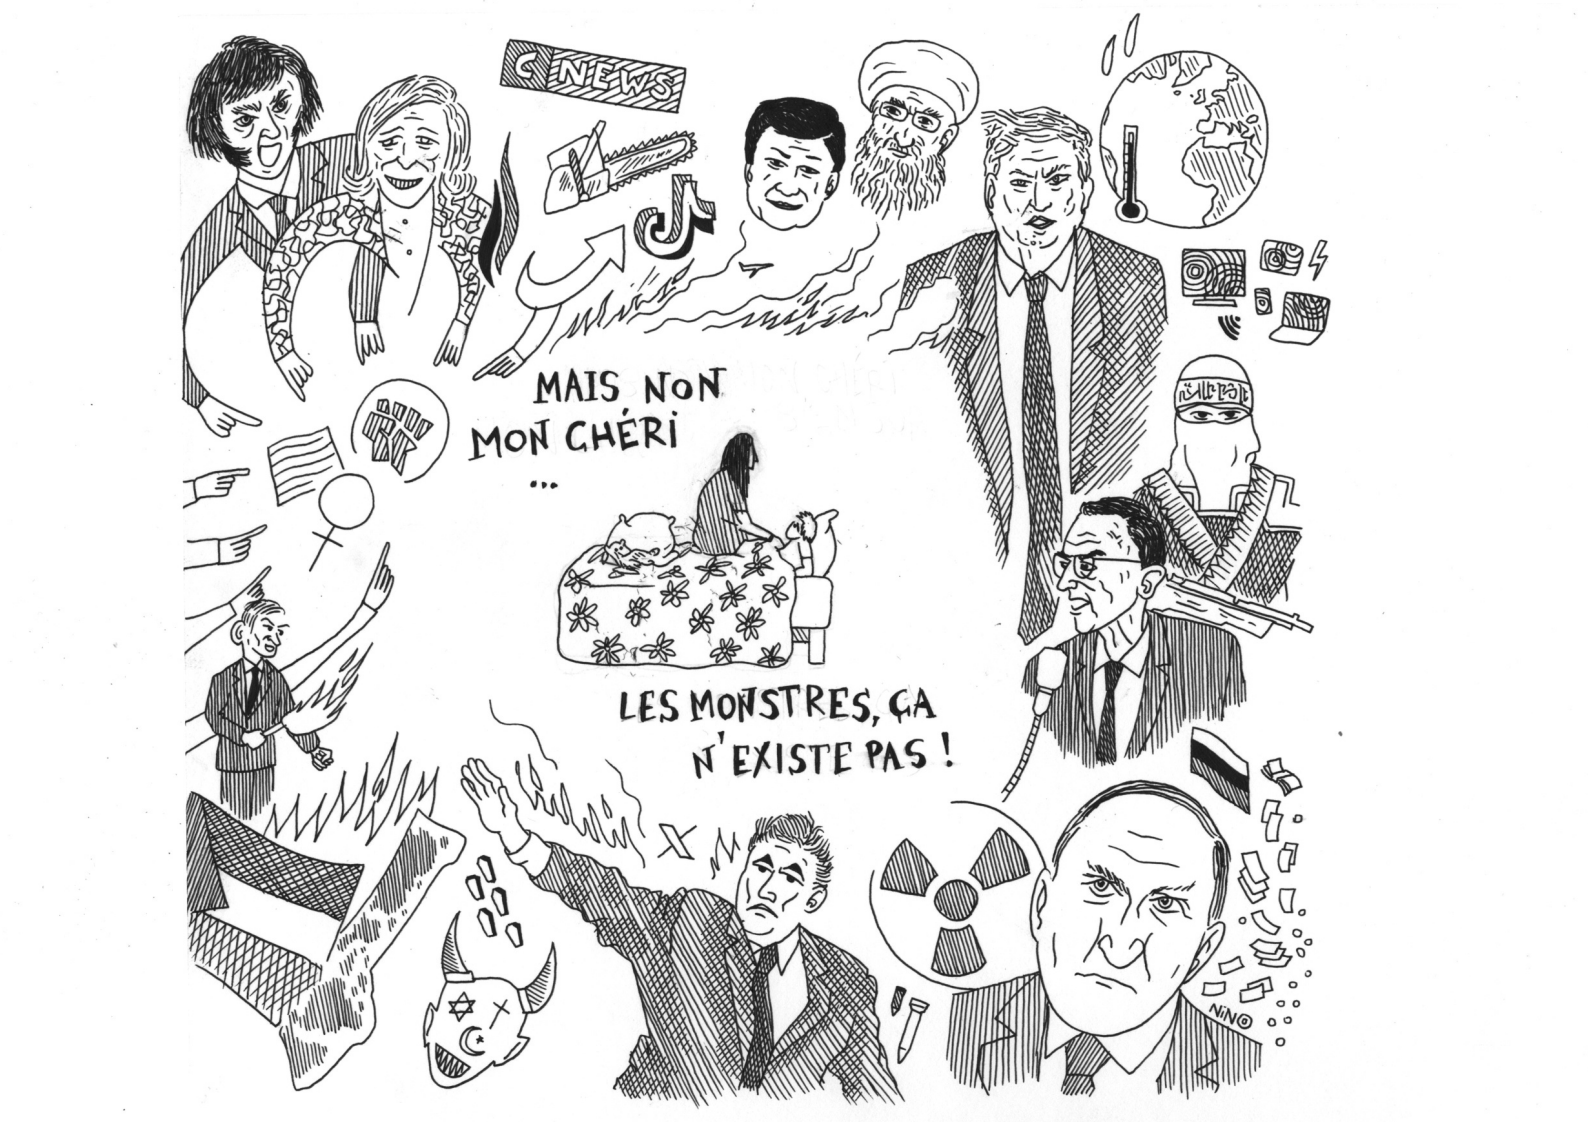 C NEWS
MAIS NON
MON CHÉRI
...
LES MONSTRES, ÇA
N'EXISTE PAS !
X
NINO